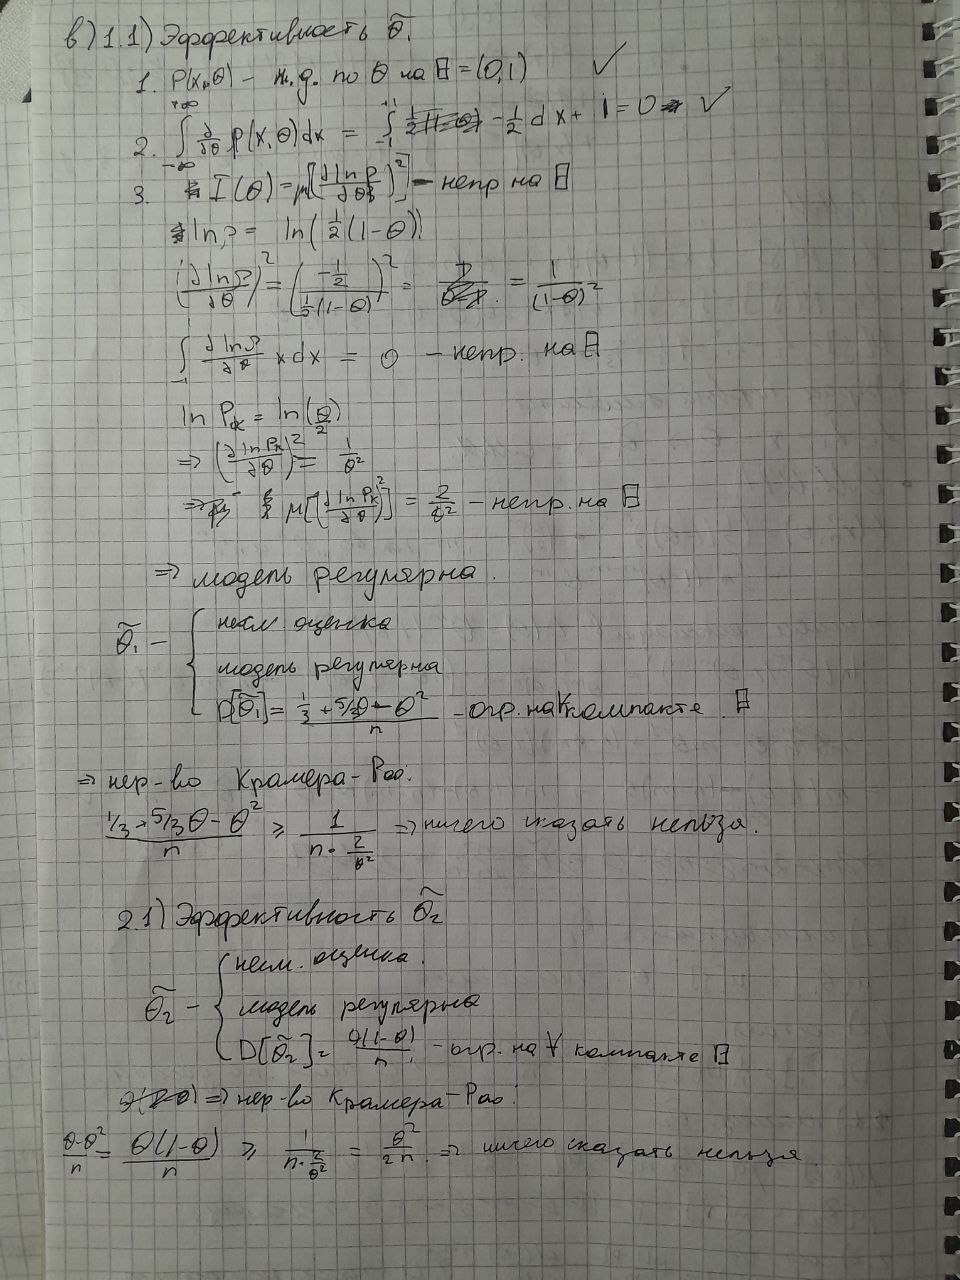 в) 1.1) Эффективность θ̃₁
1. P(x,θ) – н.д. по θ на Θ = (0,1) ✓
2. ∫_{-∞}^{+∞} ∂/∂θ p(x,θ)dx = ∫_{-1}^{+1} -1/2 dx + 1 = 0 ✓
3. I(θ) = μ[(∂ln p/∂θ)²] – непр на Θ
ln p = ln(1/2(1-θ))
(∂ln p/∂θ)² = (-1/2 / 1/2(1-θ))² = = 1/(1-θ)²
∫_{-1}^{1} ∂ln p/∂θ x dx = 0 – непр. на Θ
ln P_k = ln(θ/2)
⇒ (∂ln P_k/∂θ)² = 1/θ²
⇒ μ[(∂ln P_k/∂θ)²] = 2/θ² – непр. на Θ
⇒ модель регулярна.
θ̃₁ – { несм оценка
модель регулярна
D[θ̃₁] = (1/3 + 5/3θ - θ²)/n – огр. на ∀ компакте Θ
⇒ нер-во Крамера-Рао:
(1/3 + 5/3θ - θ²)/n ≥ 1/(n · 2/θ²) ⇒ ничего сказать нельзя.
2.1) Эффективность θ̃₂
θ̃₂ – { несм. оценка.
модель регулярна
D[θ̃₂] = θ(1-θ)/n – огр. на ∀ компакте Θ
⇒ нер-во Крамера-Рао:
(θ-θ²)/n = θ(1-θ)/n ≥ 1/(n · 2/θ²) = θ²/2n ⇒ ничего сказать нельзя